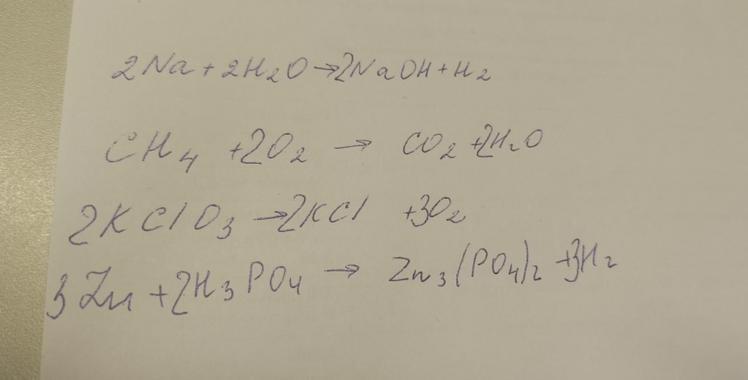 2Na + 2H₂O → 2NaOH + H₂
CH₄ + 2O₂ → CO₂ + 2H₂O
2KClO₃ → 2KCl + 3O₂
3Zn + 2H₃PO₄ → Zn₃(PO₄)₂ + 3H₂